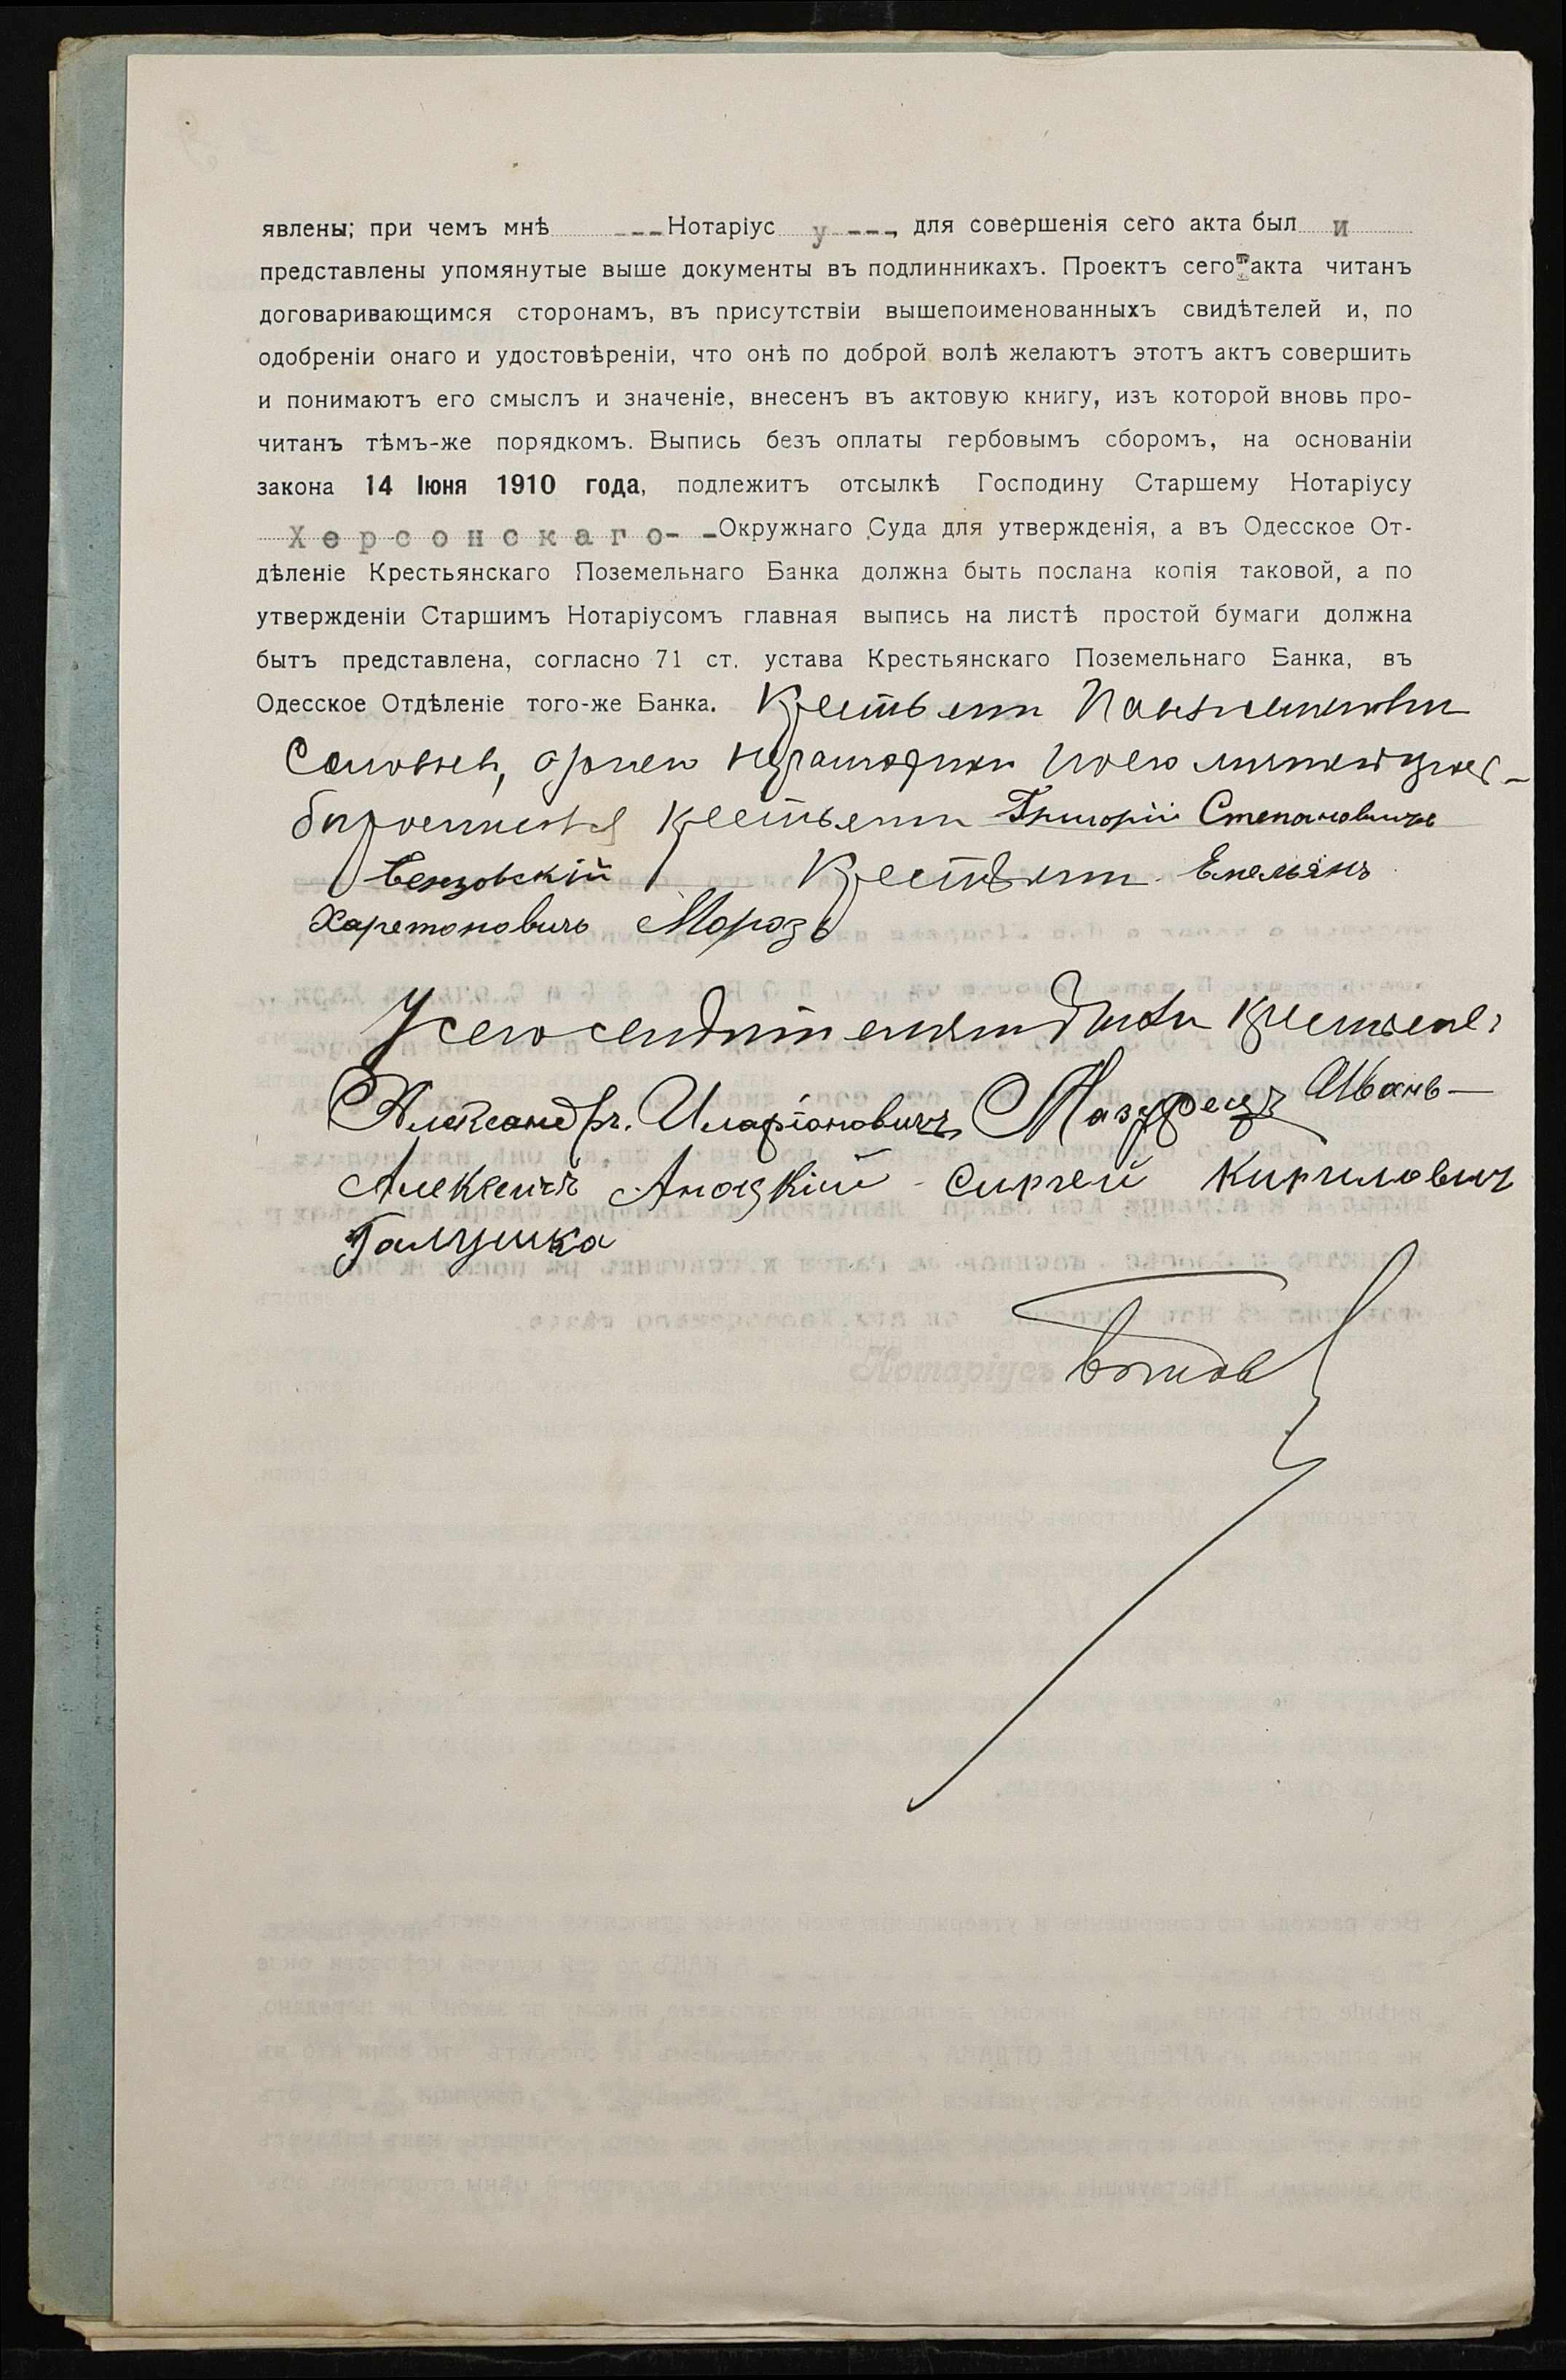 явлены; при чемъ мнѣ ---Нотаріус у ---, для совершенія сего акта был и
представлены упомянутые выше документы въ подлинникахъ. Проектъ сего акта читанъ
договаривающимся сторонамъ, въ присутствіи вышепоименованныхъ свидѣтелей и, по
одобреніи онаго и удостовѣреніи, что онѣ по доброй волѣ желаютъ этотъ актъ совершить
и понимаютъ его смыслъ и значеніе, внесенъ въ актовую книгу, изъ которой вновь про-
читанъ тѣмъ-же порядкомъ. Выпись безъ оплаты гербовымъ сборомъ, на основаніи
закона 14 Іюня 1910 года, подлежитъ отсылкѣ Господину Старшему Нотаріусу
Херсонскаго- -Окружнаго Суда для утвержденія, а въ Одесское От-
дѣленіе Крестьянскаго Поземельнаго Банка должна быть послана копія таковой, а по
утвержденіи Старшимъ Нотаріусомъ главная выпись на листѣ простой бумаги должна
бытъ представлена, согласно 71 ст. устава Крестьянскаго Поземельнаго Банка, въ
Одесское Отдѣленіе того-же Банка. Крестьянин
Крестьянин Григорій Степановичъ
Крестьянин Емельянъ
Харетоновичъ Морозъ
У сего
Александръ Иларіоновичъ Мазурецъ Иванъ
Алексеичъ Сиргей Кирилович
Галушка